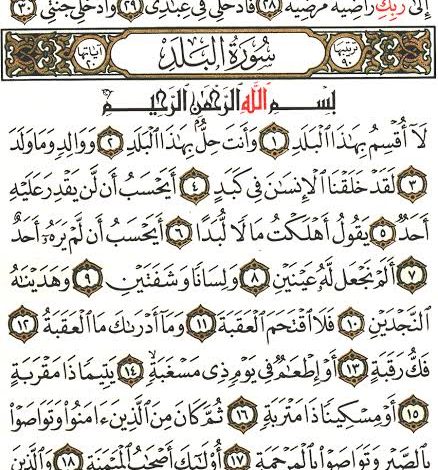 إلى ربك راضية مرضية ٢٨ فادخلي في عبدي ٢٩ وادخلي جنتي ٣٠
ترتيبها ٩٠ سورة البلد آياتها ٢٠
بسم الله الرحمن الرحيم
لَآ أُقْسِمُ بِهَٰذَا ٱلْبَلَدِ ١ وَأَنتَ حِلٌّۢ بِهَٰذَا ٱلْبَلَدِ ٢ وَوَالِدٍ وَمَا وَلَدَ
٣ لَقَدْ خَلَقْنَا ٱلْإِنسَٰنَ فِى كَبَدٍ ٤ أَيَحْسَبُ أَن لَّن يَقْدِرَ عَلَيْهِ
أَحَدٌ ٥ يَقُولُ أَهْلَكْتُ مَالًا لُّبَدًا ٦ أَيَحْسَبُ أَن لَّمْ يَرَهُۥٓ أَحَدٌ
٧ أَلَمْ نَجْعَل لَّهُۥ عَيْنَيْنِ ٨ وَلِسَانًا وَشَفَتَيْنِ ٩ وَهَدَيْنَٰهُ
ٱلنَّجْدَيْنِ ١٠ فَلَا ٱقْتَحَمَ ٱلْعَقَبَةَ ١١ وَمَآ أَدْرَىٰكَ مَا ٱلْعَقَبَةُ ١٢
فَكُّ رَقَبَةٍ ١٣ أَوْ إِطْعَٰمٌ فِى يَوْمٍ ذِى مَسْغَبَةٍ ١٤ يَتِيمًا ذَا مَقْرَبَةٍ
١٥ أَوْ مِسْكِينًا ذَا مَتْرَبَةٍ ١٦ ثُمَّ كَانَ مِنَ ٱلَّذِينَ ءَامَنُوا۟ وَتَوَاصَوْا۟
بِٱلصَّبْرِ وَتَوَاصَوْا۟ بِٱلْمَرْحَمَةِ ١٧ أُو۟لَٰٓئِكَ أَصْحَٰبُ ٱلْمَيْمَنَةِ ١٨ وَٱلَّذِينَ